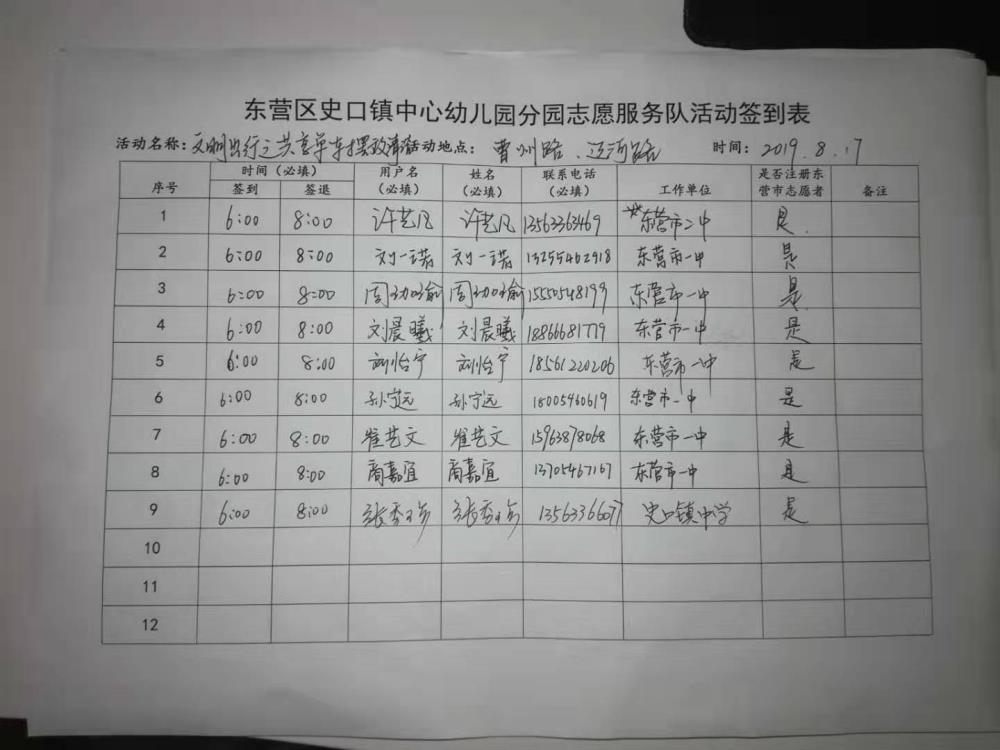 东营区史口镇中心幼儿园分园志愿服务队活动签到表
活动名称：文明出行之共享单车摆放清洁 活动地点：曹州路、运河路 时间：2019.8.17
序号 时间（必填） 用户名（必填） 姓名（必填） 联系电话（必填） 工作单位 是否注册东营市志愿者 备注
签到 签退
1 6:00 8:00 许艺凡 许艺凡 13563363469 东营市二中 是
2 6:00 8:00 刘一诺 刘一诺 13255462918 东营市一中 是
3 6:00 8:00 周 周 15550548199 东营市一中 是
4 6:00 8:00 刘晨曦 刘晨曦 18866681779 东营市一中 是
5 6:00 8:00 刘怡宁 刘怡宁 18561220206 东营市一中 是
6 6:00 8:00 孙宁远 孙宁远 18005460619 东营市一中 是
7 6:00 8:00 崔艺文 崔艺文 15963878068 东营市一中 是
8 6:00 8:00 商嘉宜 商嘉宜 13705467167 东营市一中 是
9 6:00 8:00 张秀 张秀 13563366077 史口镇中学 是
10
11
12